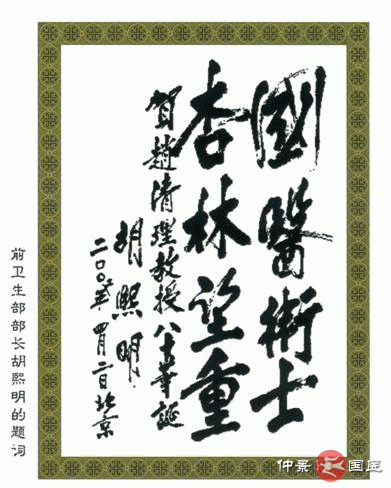 國醫術士
杏林望重
賀趙清理教授八十華誕
胡熙明
二〇〇年四月二日北京
前卫生部部长胡熙明的题词
仲景国医